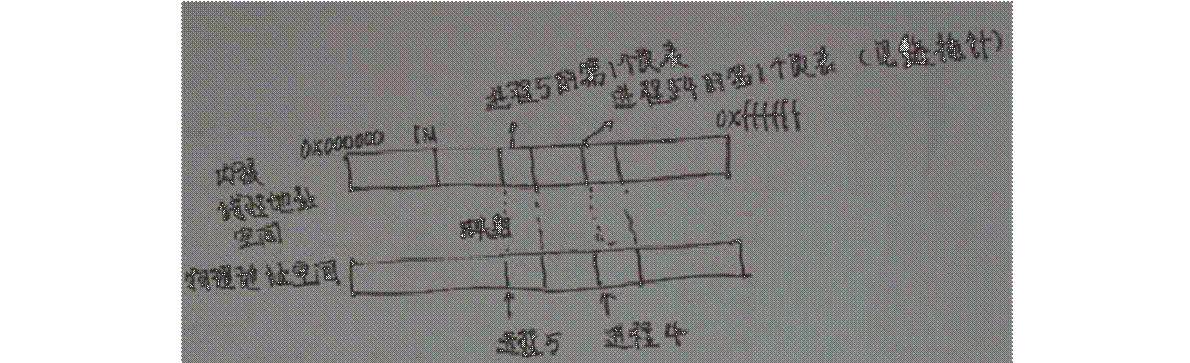 进程5的第1个页表
进程4的第1个页表
0x000000 1M 0xffffff
内核
线性地址
空间
物理地址空间
进程5 进程4